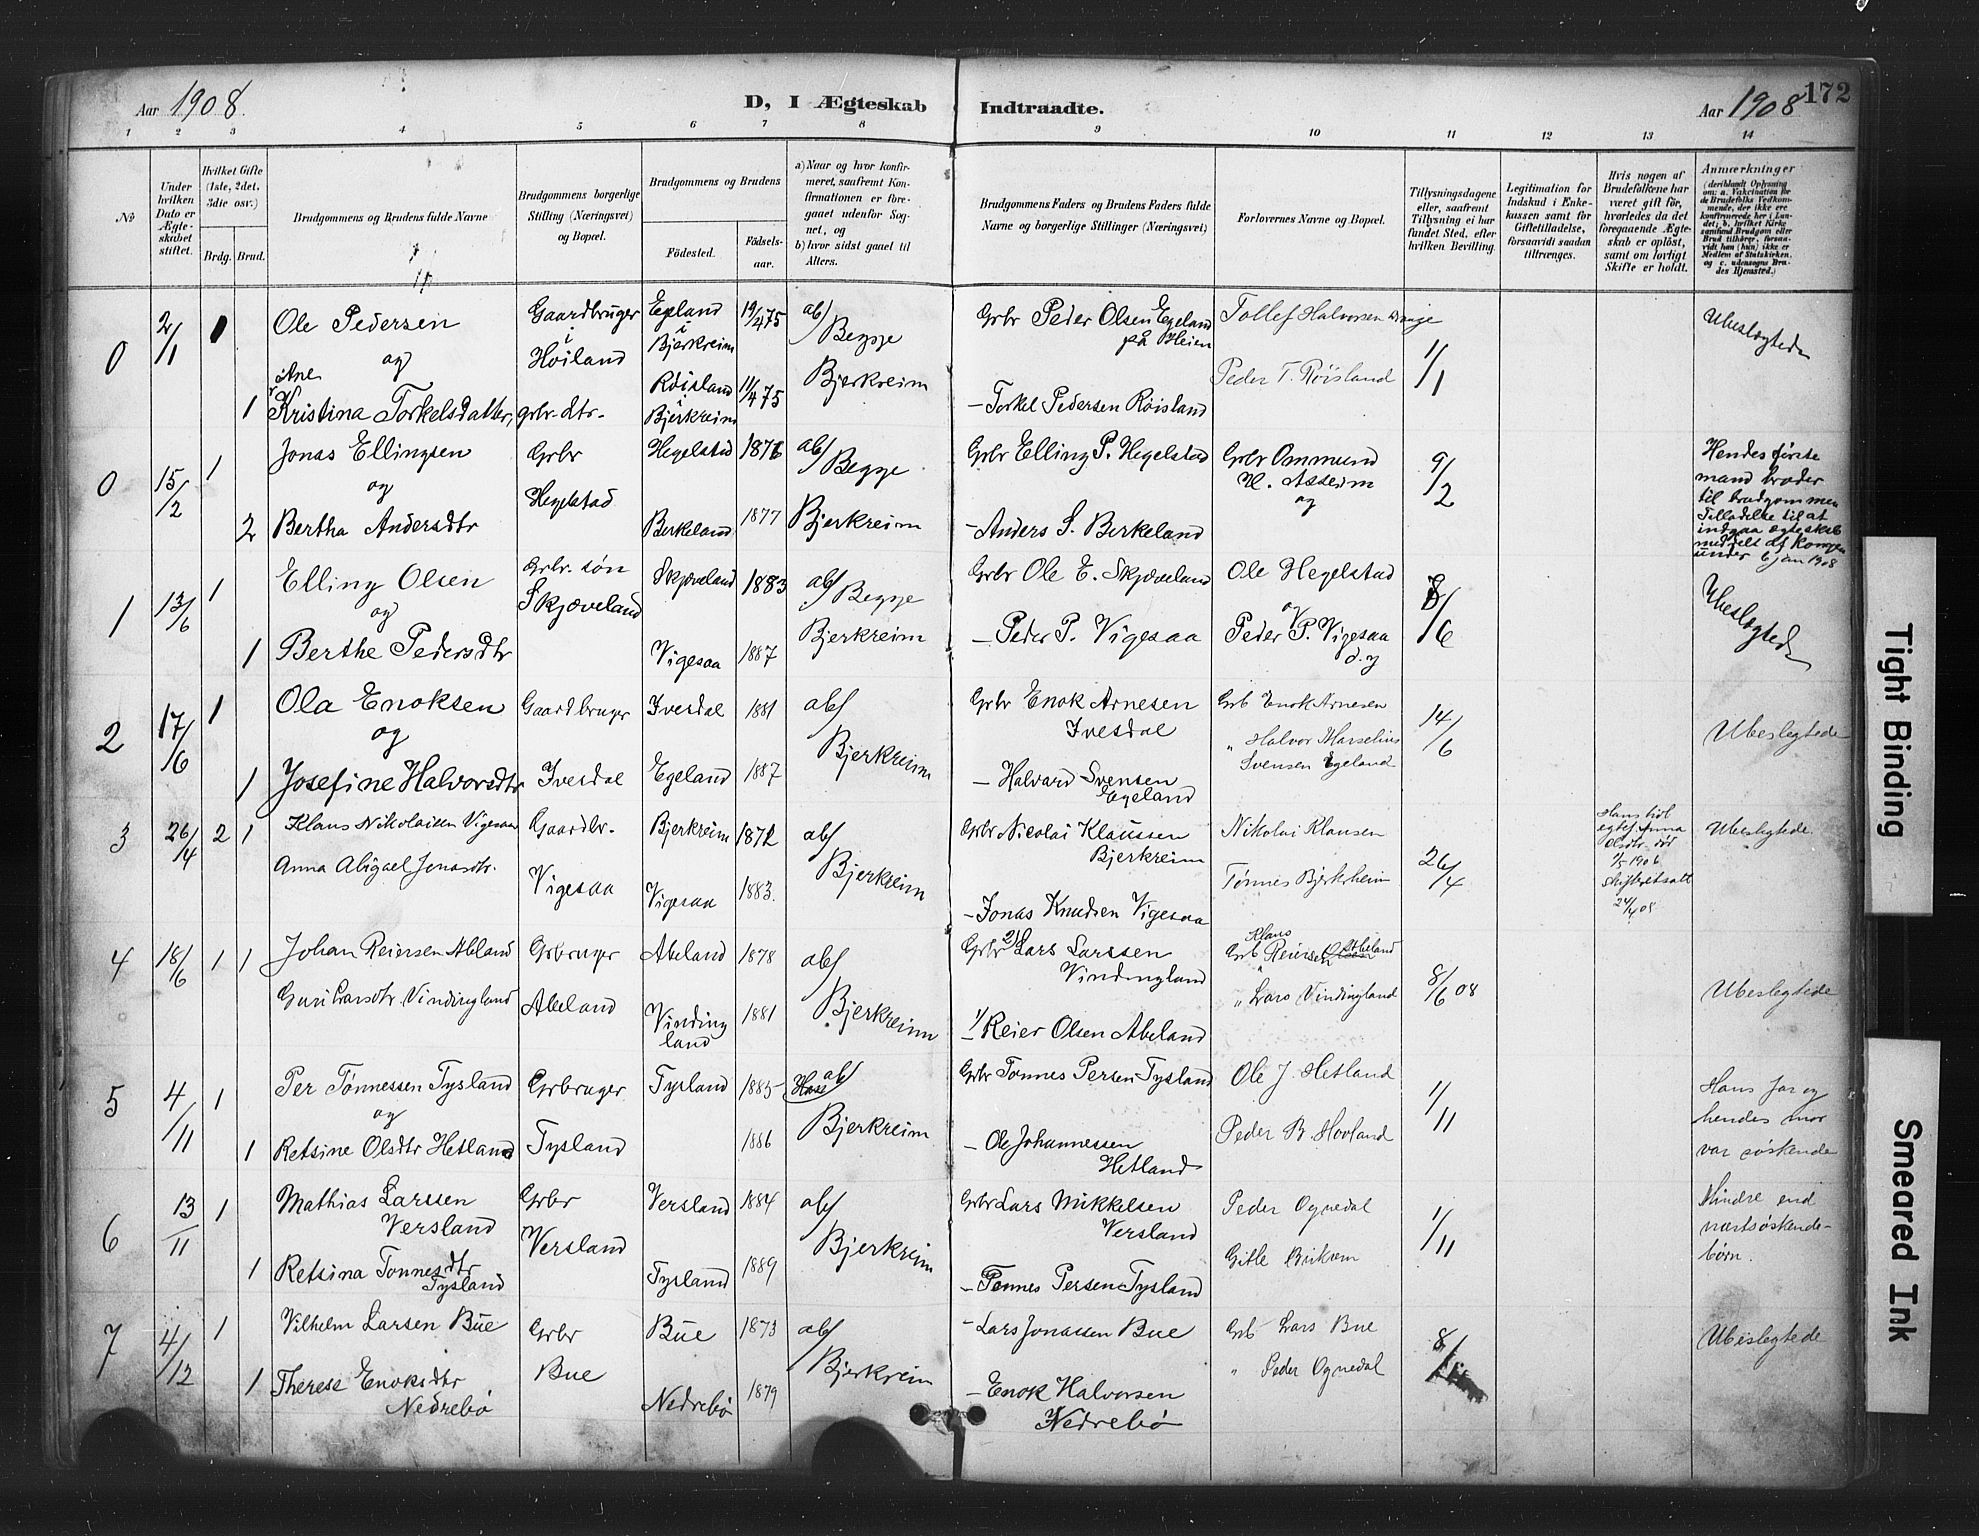 Aar 1908.
D, I Ægteskab Indtraadte.
Aar 1908
172
1 2 3 4 5 6 7 8 9 10 11 12 13 14
№
Under hvilken Dato er Ægteskabet stiftet.
Hvilket Gifte (1ste, 2det, 3die osv.)
Brdg. Brud.
Brudgommens og Brudens fulde Navne
Brudgommens borgerlige Stilling (Næringsvei) og Bopæl.
Brudgommens og Brudens
Födested.
Födselsaar.
a) Naar og hvor konfirmeret, saafremt Konfirmationen er foregaaet udenfor Sognet, og
b) hvor sidst gaaet til Alters.
Brudgommens Faders og Brudens Faders fulde Navne og borgerlige Stillinger (Næringsvei)
Forlovernes Navne og Bopæl.
Tillysningsdagene eller, saafremt Tillysning ei har fundet Sted, efter hvilken Bevilling.
Legitimation for Indskud i Enkekassen samt for Giftetilladelse, forsaavidt saadan tiltrænges.
Hvis nogen af Brudefolkene har været gift før, hvorledes da det foregaaende Ægteskab er oplöst, samt om lovligt Skifte er holdt.
Anmærkninger
0 2/1 1 Ole Pedersen Gaardbruger i Høiland Egeland i Bjerkreim 19/4 75 ab/ Begge Bjerkreim Grbr Peder Olsen Egeland på Heien Tollef Halvorsen 1/1 Ubeslægtede
og
1 Ane Kristina Torkelsdatter, grbr. dtr. Røisland i Bjerkreim 11/4 75 – Torkel Pedersen Røisland Peder T. Røisland
0 15/2 1 Jonas Ellingsen Grbr Hegelstad Hegelstad 1876 ab/ Begge Bjerkreim Grbr Elling P. Hegelstad Grbr Ommund 9/2
og
2 Bertha Andersdtr Berkeland 1877 – Anders S. Berkeland
Hendes første
mand broder
til brudgommen
Tilladelse til at
indgaa ægteskab
meddelt af Kongen
under 6 jan 1908
1 13/6 1 Elling Olsen Grbr. søn Skjæveland Skjæveland 1883 ab/ Begge Bjerkreim Grbr Ole E. Skjæveland Ole Hegelstad 8/6 Ubeslægtede
og
1 Berthe Pedersdtr Vigesaa 1887 – Peder P. Vigesaa og Peder P. Vigesaa
2 17/6 1 Ola Enoksen Gaardbruger Ivesdal 1881 ab/ Bjerkreim Grbr Enok Arnesen Ivesdal Grb Enok Arnesen 14/6 Ubeslegtede
og
1 Josefine Halvorsdtr Ivesdal Egeland 1887 – Halvard Svensen Egeland " Halvor Marselius Svensen Egeland
3 26/4 2 1 Klaus Nikolaisen Vigesaa Gaardbr. Bjerkreim 1872 ab/ Bjerkreim Grbr Nicolai Klaussen Bjerkreim Nikolai Klausen 26/4 Ubeslegtede
Anna Abigael Jonasdtr. Vigesaa Vigesaa 1883. – Jonas Knudsen Vigesaa Tønnes Bjerkrheim
Anna
Olsdtr. død
1/5 1906
skifteretsatt
24/4 08
4 18/6 1 1 Johan Reiersen Abeland Grbruger Abeland 1878 ab/ Bjerkreim Grbr 2/ Lars Larssen Vindingland Grb Klaus Reiersen Abeland 8/6 08 Ubeslegtede
Guri Larsdtr. Vindingland Abeland Vindingland 1881 1/ – Reier Olsen Abeland " Lars Vindingland
5 4/11 1 Per Tønnessen Tysland Grbruger Tysland 1885 ab/ Bjerkreim Grbr Tønnes Persen Tysland Ole J. Hetland 1/11 Hans far og
og hendes mor
1 Retsine Olsdtr Hetland Tysland 1886 – Ole Johannessen Hetland Peder B. Hovland var søskende
6 13/11 1 Mathias Larssen Versland Grbr Versland 1884 ab/ Bjerkreim Grbr Lars Mikkelsen Versland Peder Ognedal 1/11 Mindre end
næstsøskende-
1 Retsina Tønnesdtr Tysland Versland Tysland 1889 – Tønnes Persen Tysland Gitle børn.
7 4/12 1 Vilhelm Larsen Bue Grbr Bue 1873 ab/ Bjerkreim – Lars Jonassen Bue Grb Lars Bue 8/ Ubeslegtede
1 Therese Enoksdtr Nedrebø Bue Nedrebø 1879 – Enok Halvorsen Nedrebø " Peder Ognedal
Tight Binding
Smeared Ink